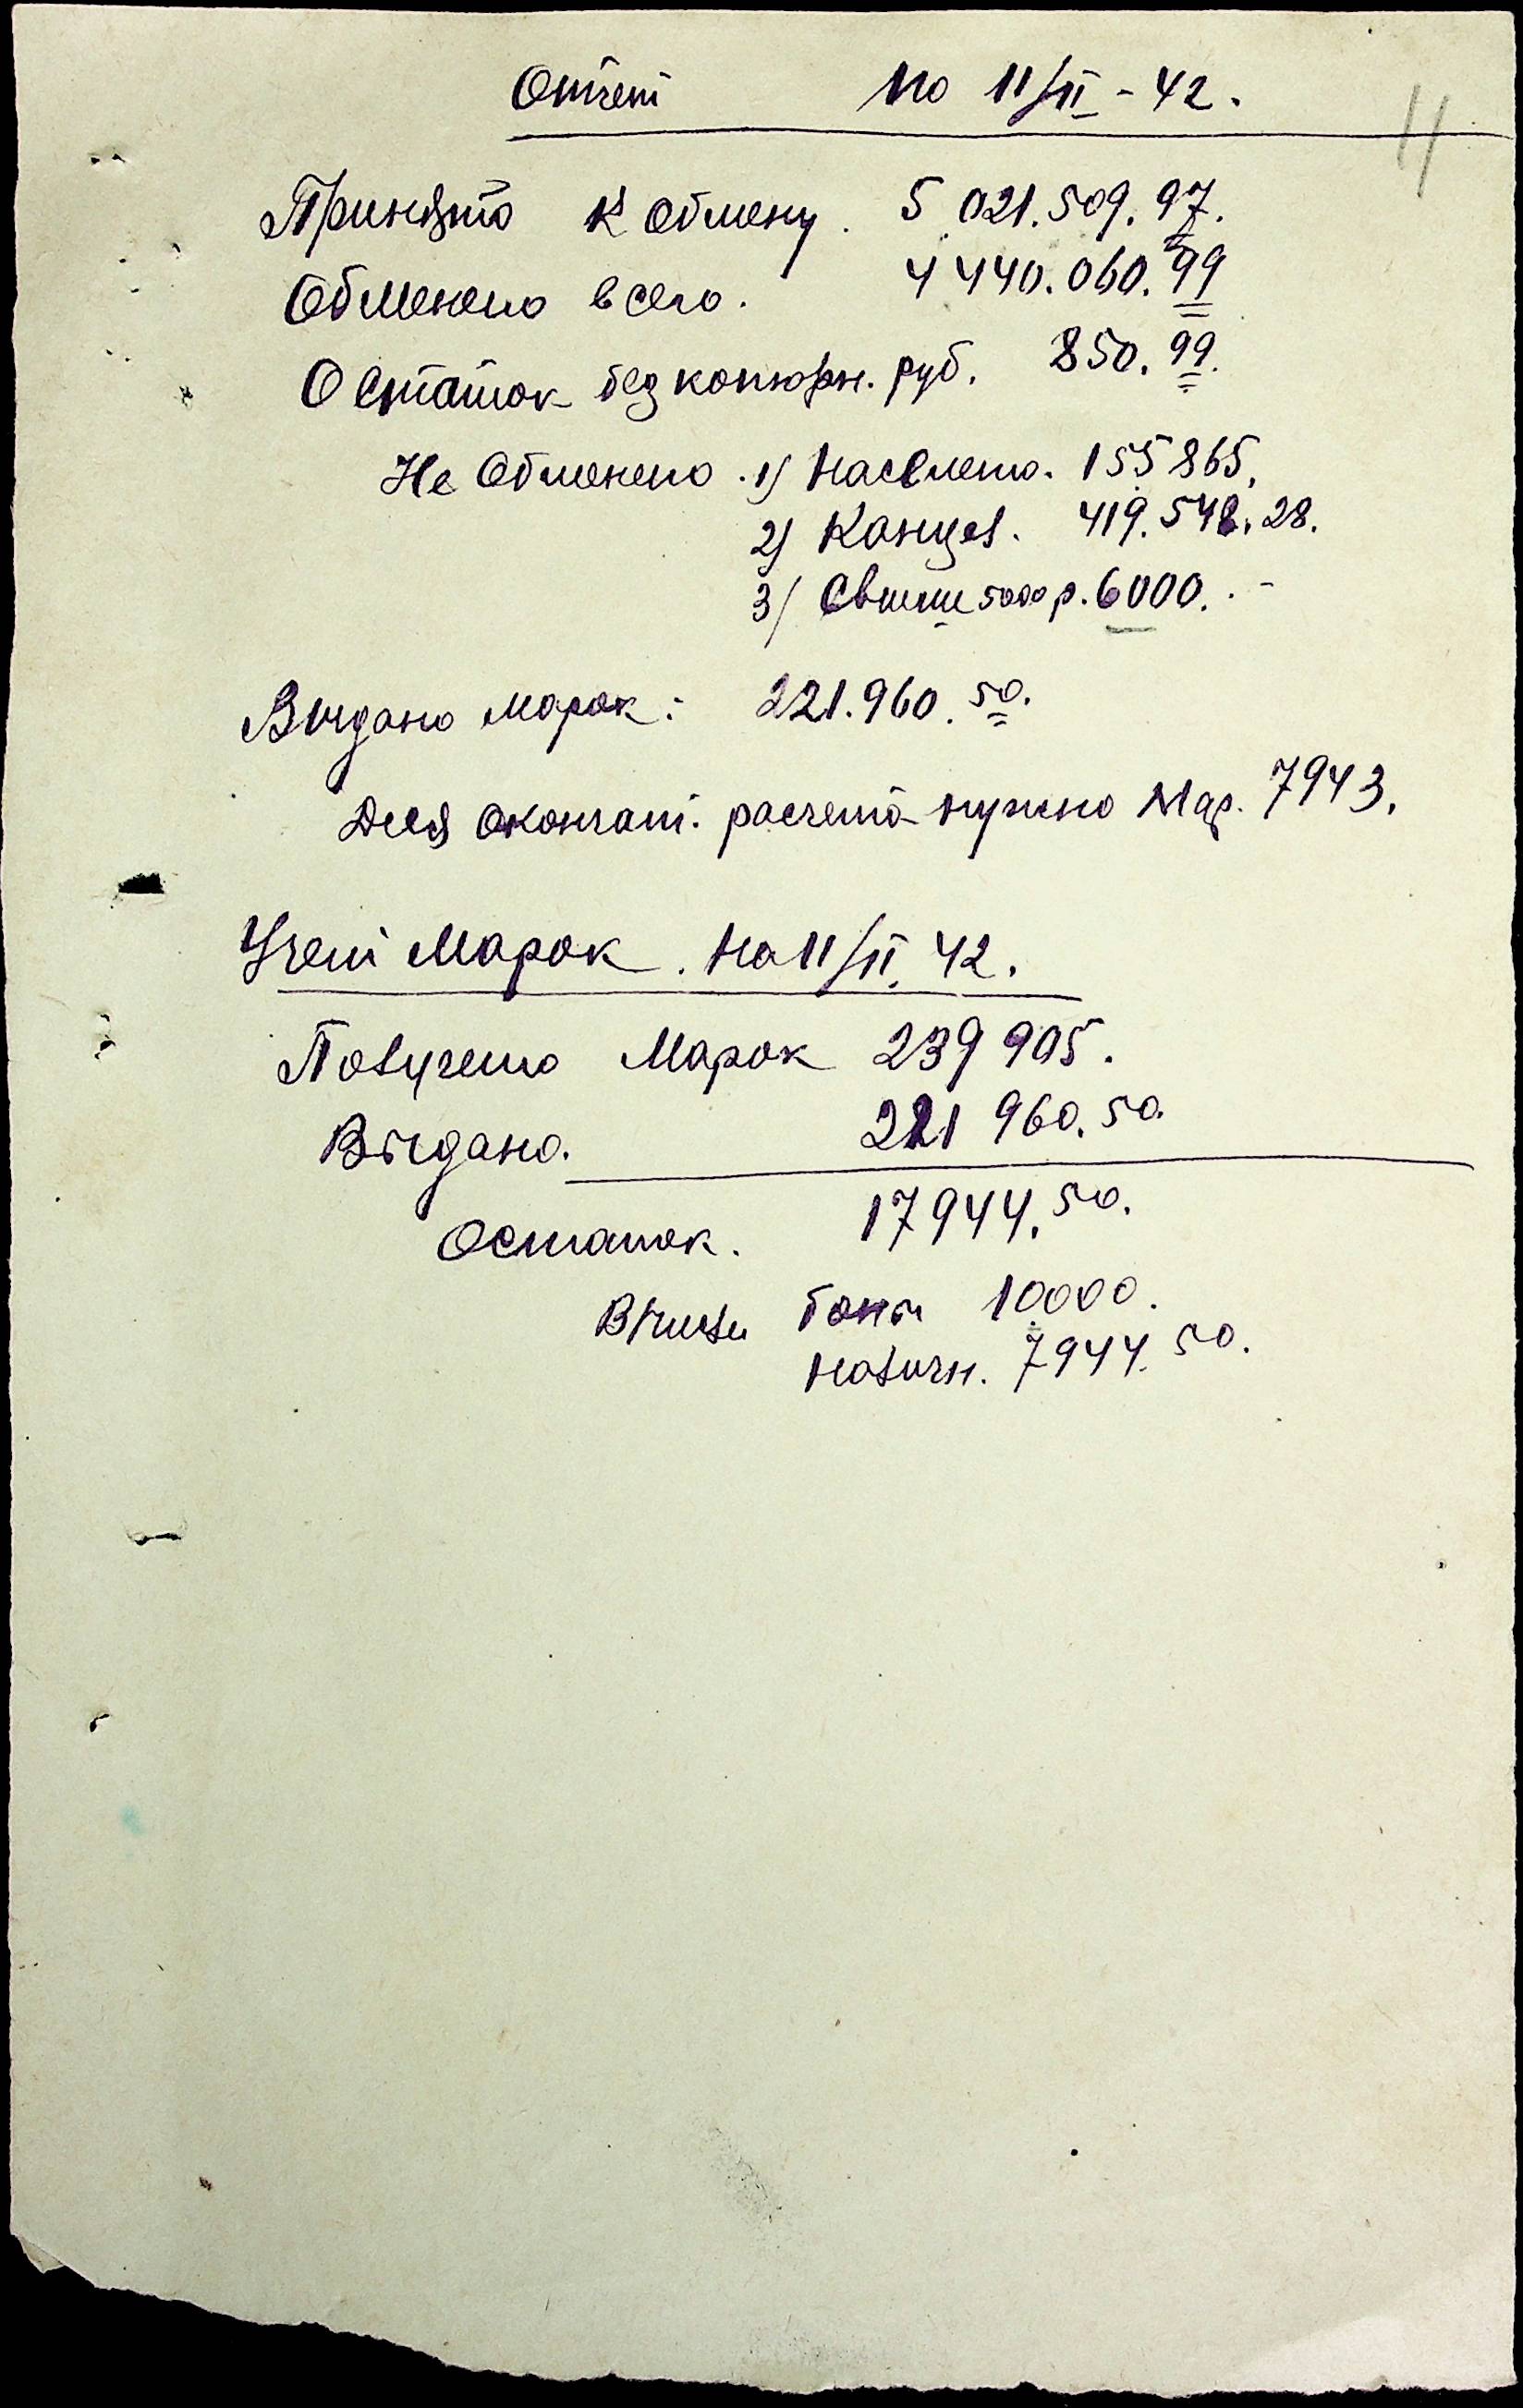 Отчет по 11/II - 42.
11
Принято к обмену. 5.021.509.97.
Обменено всего. 4 440.060.99
Остаток безкопюрн. руб. 850.99.
Не обменено. 1) Населению. 155865.
2) Канцел. 419.548.28.
3) Свыше 5000 р. 6000. -
Выдано марок: 221.960.50.
Для окончат. расчета нужно мар. 7943.
Учет марок. на 11/II. 42.
Получено марок 239 905.
Выдано. 221 960.50.
Остаток. 17944.50.
В числе 10000.
наличн. 7944.50.